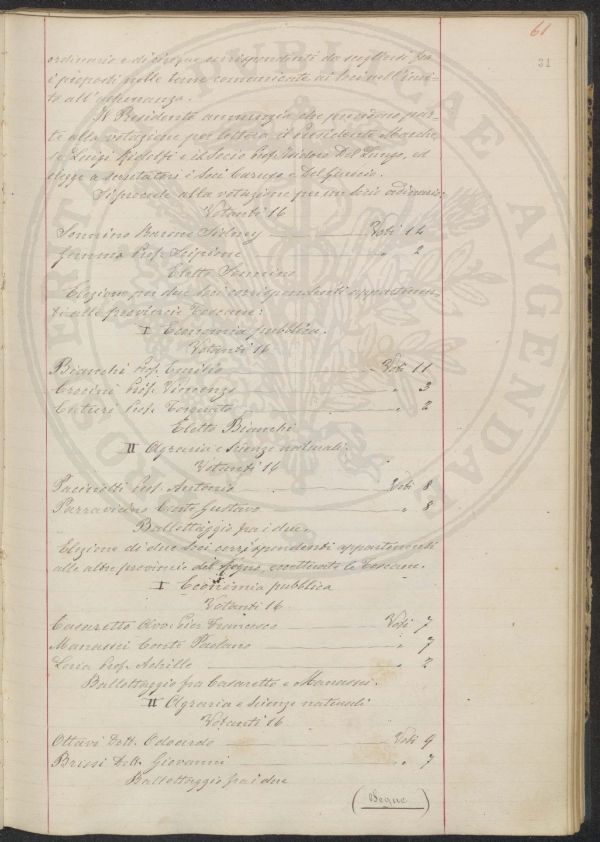 61
31
ordinario e di cinque corrispondenti da scegliersi fra
i proposti nelle terne comunicate ai Soci nell'invi-
to all'adunanza.
Il Presidente annunzia che prendono par-
te alla votazione per lettera il Presidente Marche-
se Luigi Ridolfi e il Socio Prof. Isidoro Del Lungo, ed
elegge a scrutatori i Soci Caruso e Del Guercio.
Si procede alla votazione per un Socio ordinario:
Votanti 16
Sonnino Barone Sidney Voti 14
Gemma Prof. Scipione " 2
Eletto Sonnino
Elezione per due Soci corrispondenti appartenen-
ti alle provincie Toscane:
I Economia pubblica.
Votanti 16
Bianchi Prof. Emilio Voti 11
Crocini Prof. Vincenzo " 3
Cuturi Prof. Torquato " 2
Eletto Bianchi
II Agraria e Scienze naturali.
Votanti 16
Pacinotti Prof. Antonio Voti 8
Parravicino Conte Gustavo " 8
Ballottaggio fra i due.
Elezione di due Soci corrispondenti appartenenti
alle altre provincie del Regno, eccettuate le Toscane.
I Economia pubblica
Votanti 16
Casaretto Avv. Pier Francesco Voti 7
Manassei Conte Paolano " 7
Loria Prof. Achille " 2
Ballottaggio fra Casaretto e Manassei.
II Agraria e Scienze naturali
Votanti 16
Ottavi Dott. Odoardo Voti 9
Briosi Dott. Giovanni " 7
Ballottaggio fra i due
(Segue)